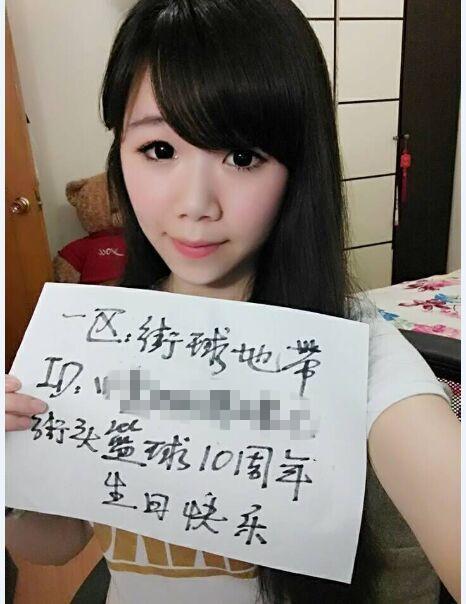 一区:街球地带
ID:
街头篮球10周年
生日快乐